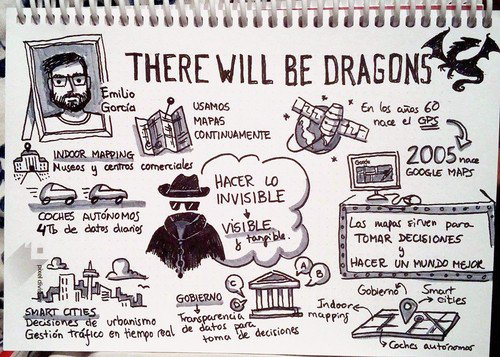 THERE WILL BE DRAGONS
Emilio
García
USAMOS
MAPAS
CONTINUAMENTE
En los años 60
nace el GPS
INDOOR MAPPING
Museos y centros comerciales
Google
2005 nace
GOOGLE MAPS
COCHES AUTÓNOMOS
4Tb de datos diarios
HACER LO
INVISIBLE
VISIBLE
y tangible.
Los mapas sirven para
TOMAR DECISIONES
y
HACER UN MUNDO MEJOR
SMART CITIES
Decisiones de urbanismo
Gestión tráfico en tiempo real
GOBIERNO
Transparencia
de datos para
toma de decisiones
C
A
B
Gobierno
Smart
cities
Indoor
mapping
Coches autónomos